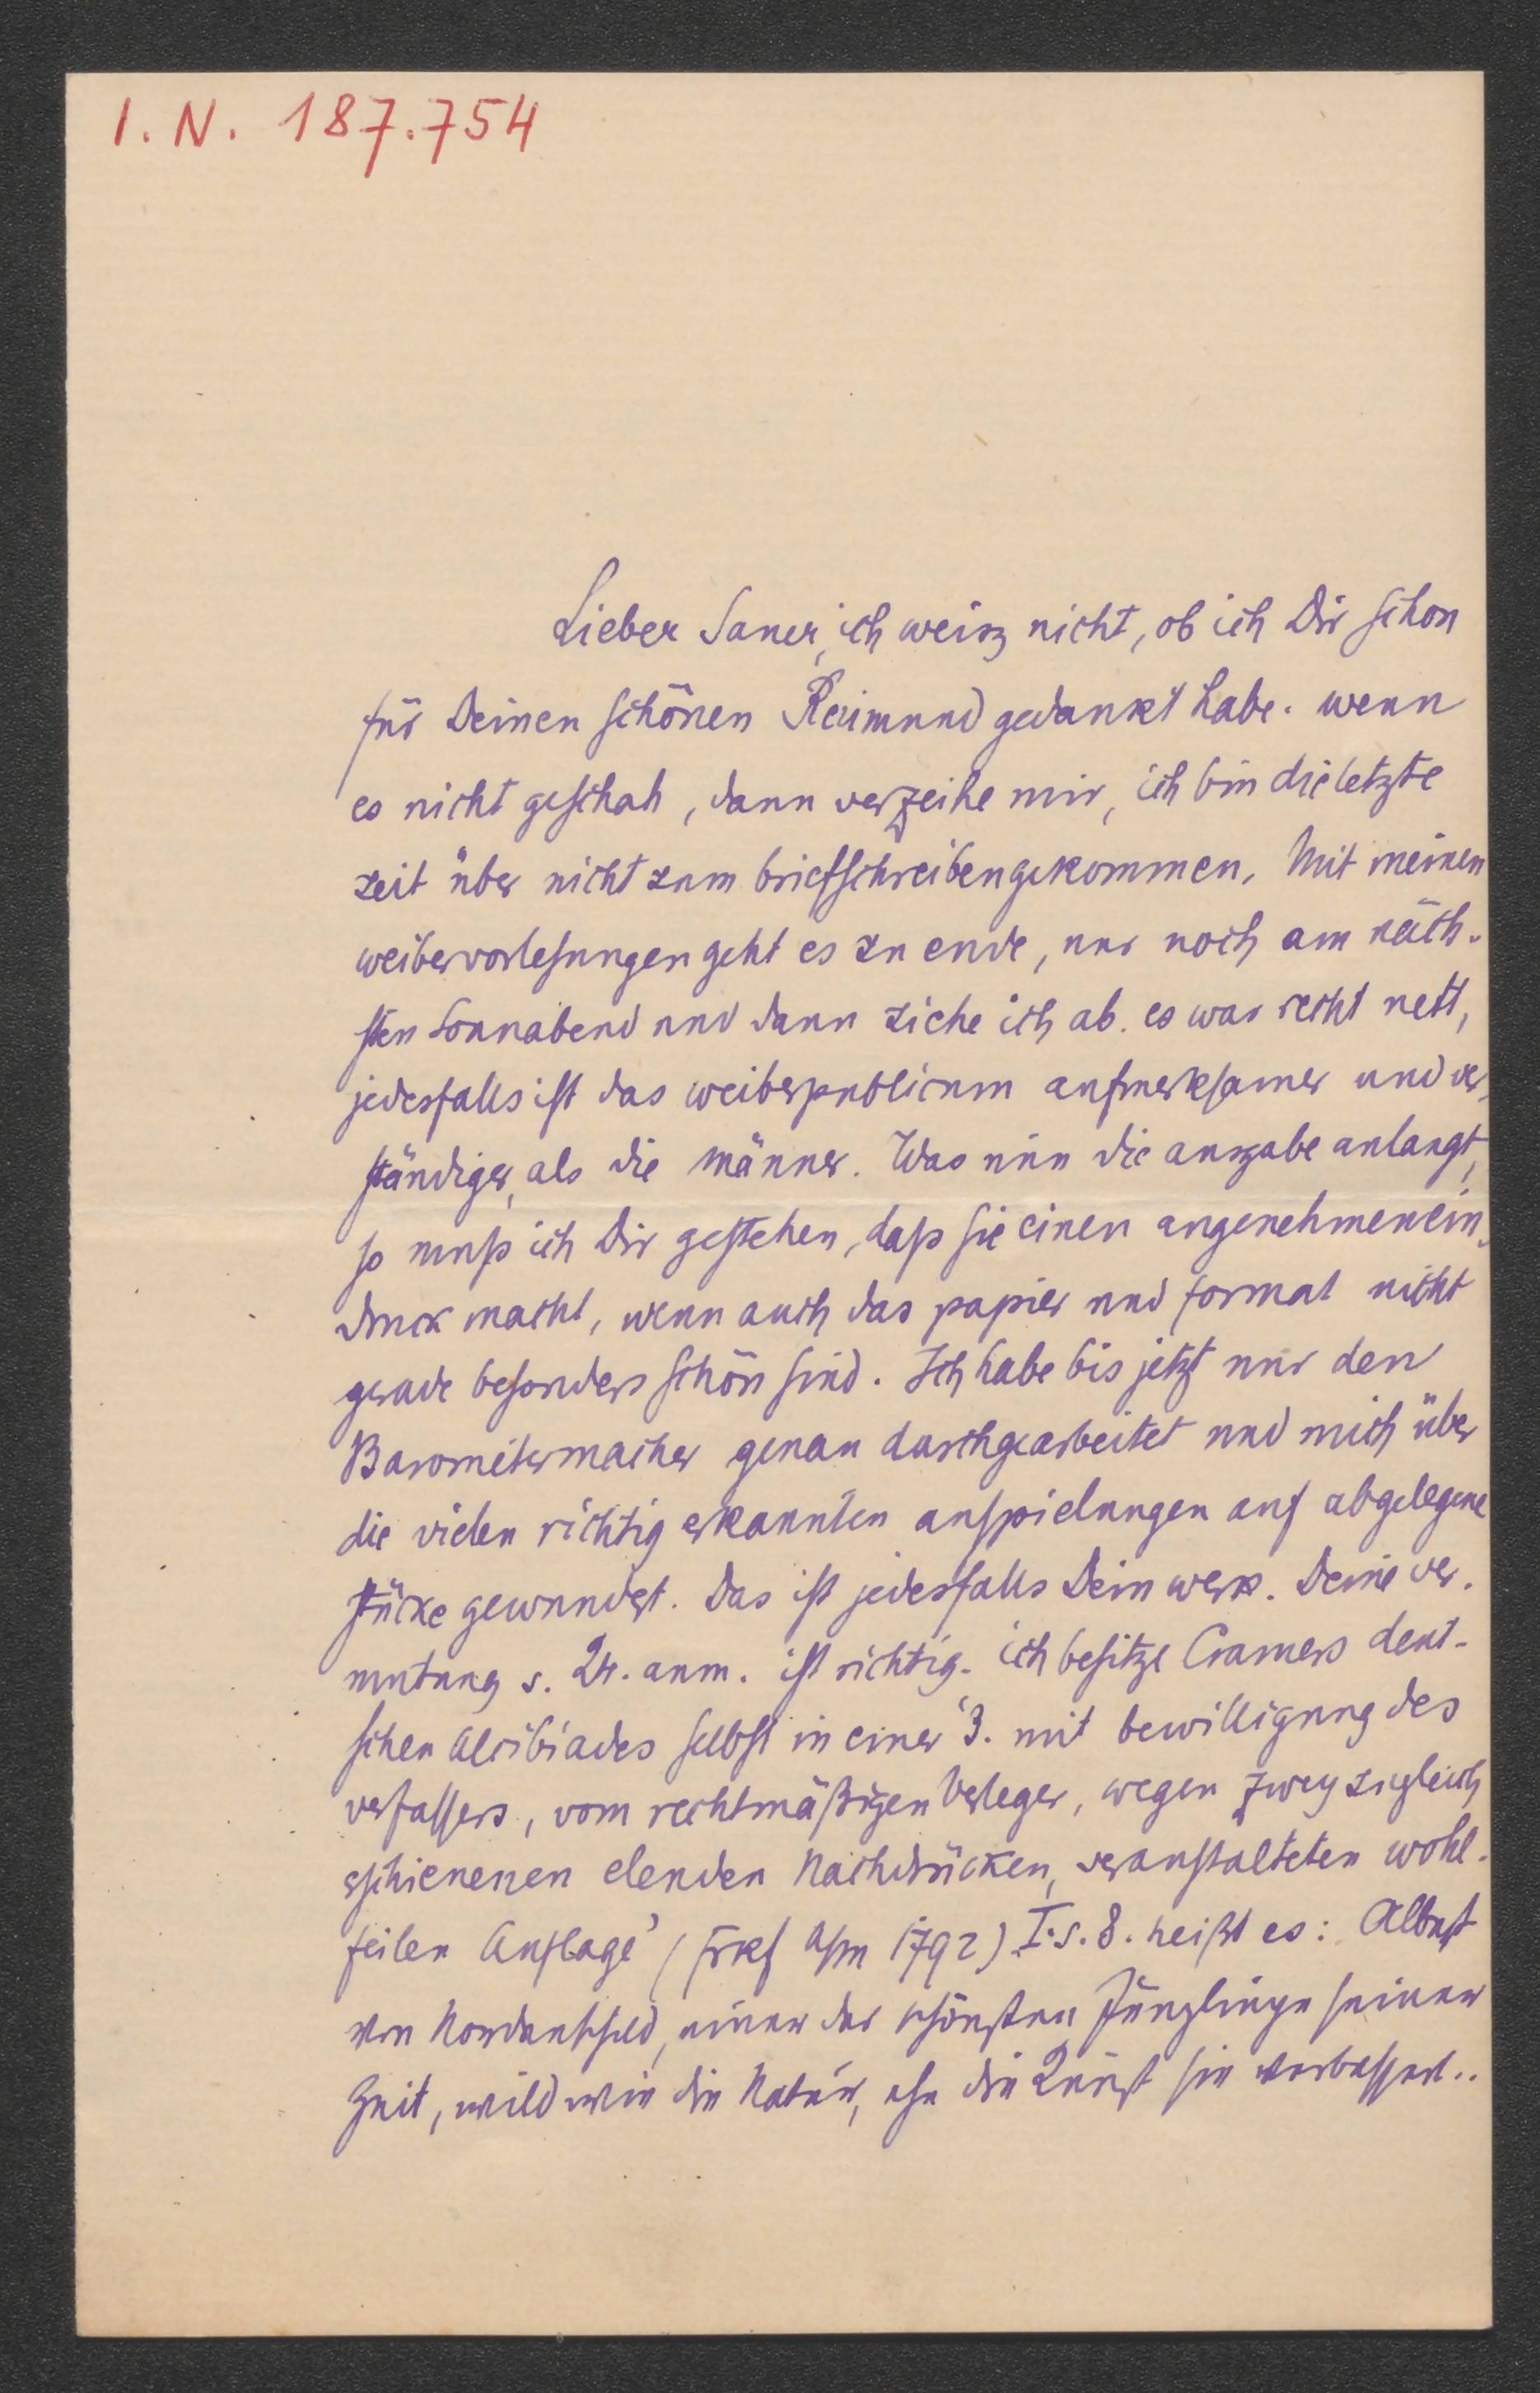 I. N. 187.754
Lieber Sauer, ich weisz nicht, ob ich Dir schon
für Deinen schönen Raimund gedankt habe. wenn
es nicht geschah, dann verzeihe mir, ich bin die letzte
zeit über nicht zum briefschreiben gekommen. Mit meinen
weibervorlesungen geht es zu ende, nur noch am näch-
sten Sonnabend und dann ziehe ich ab. es war recht nett,
jedesfalls ist das weiberpublicum aufmerksamer und ver-
ständiger, als die männer. Was nun die ausgabe anlangt,
so muß ich Dir gestehen, daß sie einen angenehmen ein-
druck macht, wenn auch das papier und format nicht
gerade besonders schön sind. Ich habe bis jetzt nur den
Barometermacher genau durchgearbeitet und mich über
die vielen richtig erkannten anspielungen auf abgelegene
stücke gewundert. Das ist jedesfalls Dein werk. Deine ver-
mutung s. 24. anm. ist richtig. ich besitze Cramers deut-
schen Alcibiades selbst in einer '3. mit bewilligung des
verfassers, vom rechtmäßigen Verleger, wegen zwey zugleich
erschienenen elenden Nachdrücken, veranstalteten wohl-
feilen Auflage' (Frkf Lpz 1792) I. s. 8. heißt es: Albrecht
von Nordenschild, einer der schönsten Jünglinge seiner
Zeit, wild wie die Natur, ehe die Kunst sie verbessert..